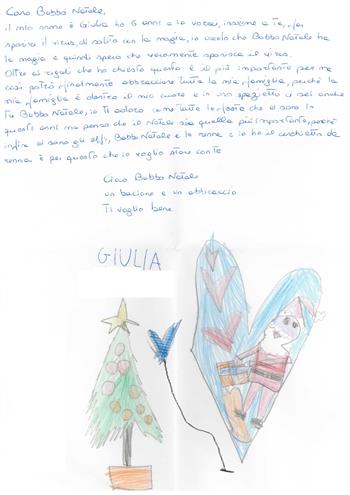 Caro Babbo Natale,
il mio nome è Giulia ho 6 anni e lo vorrei, insieme a te, far
sparire il virus, di solito con la magia, io credo che Babbo Natale ha
la magia e quindi spero che veramente sparisca il virus.
Oltre ai regali che ho chiesto questo è il più importante per me
così potrò finalmente abbracciare tutta la mia famiglia, perché la
mia famiglia è dentro il mio cuore e in uno spazietto ci sei anche
tu Babbo Natale, io ti adoro come tutte le feste che ci sono in
questi anni ma penso che il Natale sia quella più importante, perché
infine ci sono gli elfi, Babbo Natale e le renne e io ho il cerchietto da
renna è per questo che io voglio stare con te
Ciao Babbo Natale
un bacione e un abbraccio
Ti voglio bene
GIULIA